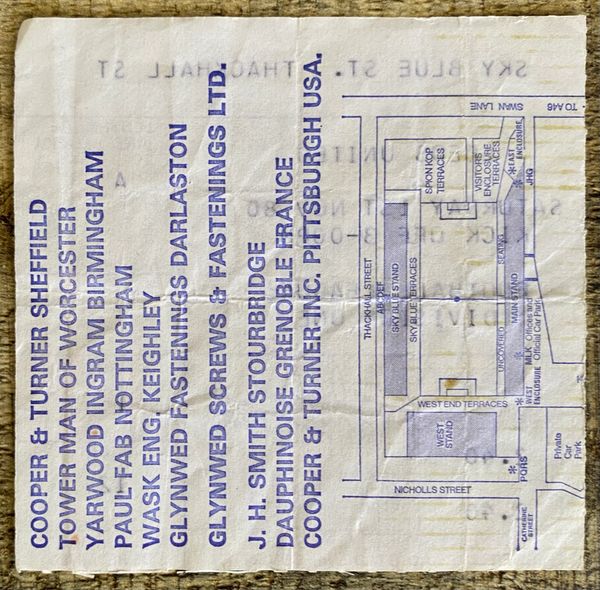 COOPER & TURNER SHEFFIELD
TOWER MAN OF WORCESTER
YARWOOD INGRAM BIRMINGHAM
PAUL FAB NOTTINGHAM
WASK ENG. KEIGHLEY
GLYNWED FASTENINGS DARLASTON
GLYNWED SCREWS & FASTENINGS LTD.
J. H. SMITH STOURBRIDGE
DAUPHINOISE GRENOBLE FRANCE
COOPER & TURNER INC. PITTSBURGH USA.
SKY BLUE ST. THACKHALL ST
TO A46
SWAN LANE
SPION KOP
TERRACES
VISITORS
ENCLOSURE
TERRACES
EAST
ENCLOSURE
JHG
THACKHALL STREET
ABCDEF
SKY BLUE STAND
SKY BLUE TERRACES
UNCOVERED
SEATING
MAIN STAND
MLK
Offices and
Official Car Park
WEST
ENCLOSURE
WEST END TERRACES
WEST
STAND
PQRS
Private
Car
Park
NICHOLLS STREET
CATHERINE
STREET